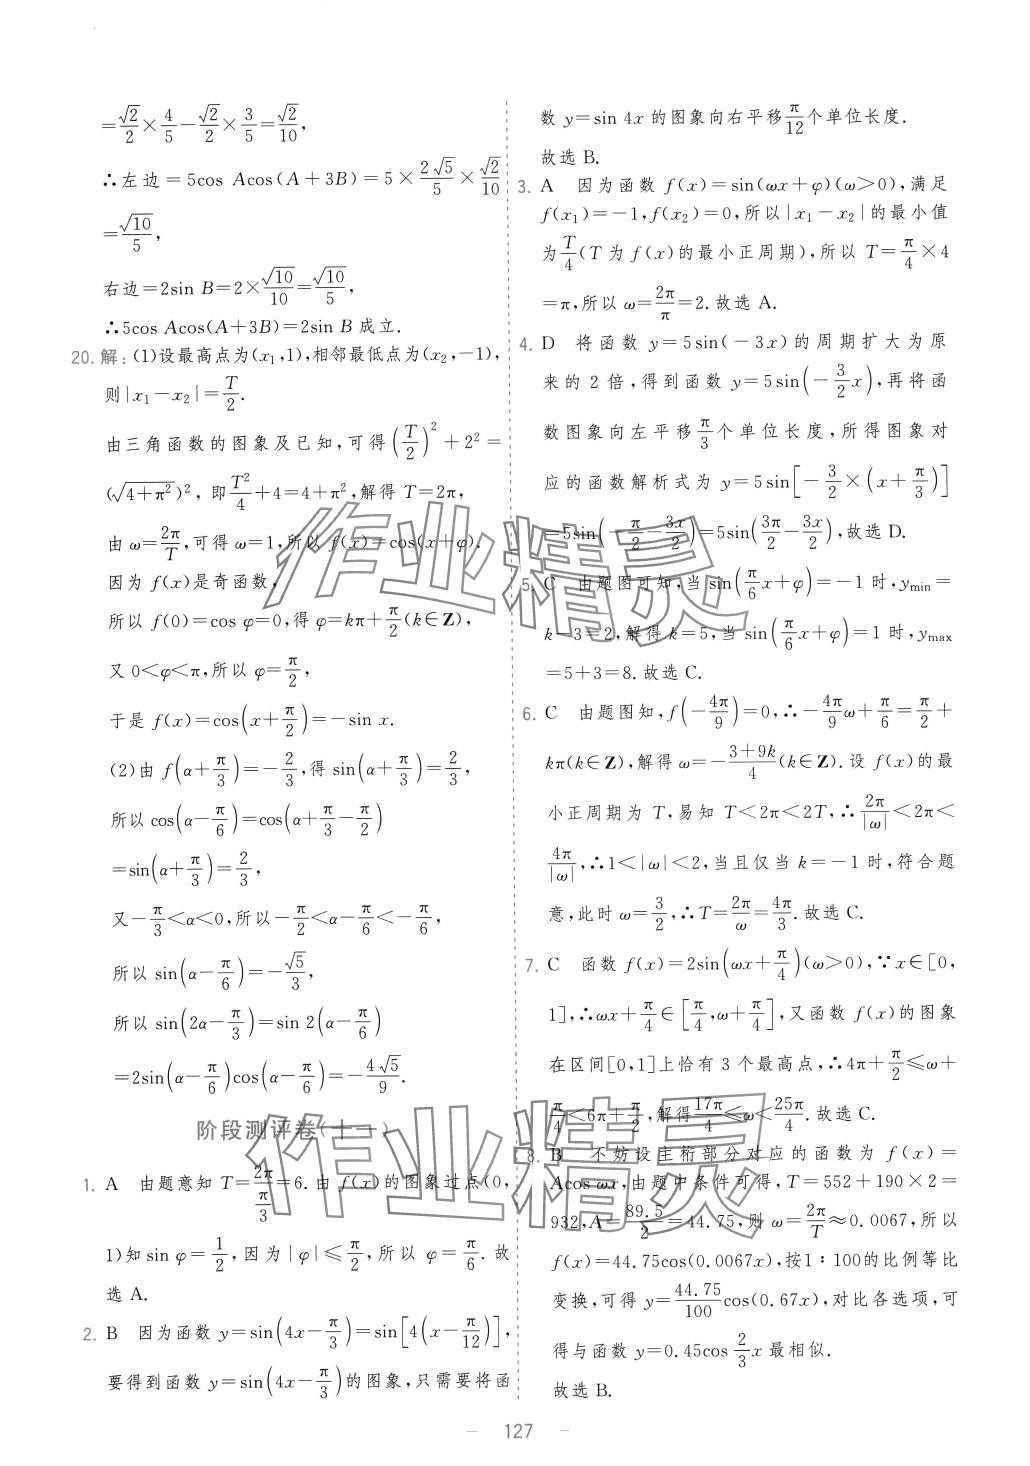 =√2/2×4/5-√2/2×3/5=√2/10,
∴左边=5cos Acos(A+3B)=5×2√5/5×√2/10
=√10/5,
右边=2sin B=2×√10/10=√10/5,
∴5cos Acos(A+3B)=2sin B 成立.
20. 解:(1)设最高点为(x₁,1),相邻最低点为(x₂,-1),
则|x₁-x₂|=T/2.
由三角函数的图象及已知,可得(T/2)²+2²=
(√(4+π²))²,即T²/4+4=4+π²,解得 T=2π,
由 ω=2π/T,可得 ω=1,所以 f(x)=cos(x+φ).
因为 f(x)是奇函数,
所以 f(0)=cos φ=0,得 φ=kπ+π/2(k∈Z),
又 0<φ<π,所以 φ=π/2,
于是 f(x)=cos(x+π/2)=-sin x.
(2)由 f(α+π/3)=-2/3,得 sin(α+π/3)=2/3,
所以 cos(α-π/6)=cos(α+π/3-π/2)
=sin(α+π/3)=2/3,
又-π/3<α<0,所以-π/2<α-π/6<-π/6,
所以 sin(α-π/6)=-√5/3,
所以 sin(2α-π/3)=sin 2(α-π/6)
=2sin(α-π/6)cos(α-π/6)=-4√5/9.
阶段测评卷(十一)
1. A 由题意知 T=2π/(π/3)=6. 由 f(x)的图象过点(0,
1)知 sin φ=1/2,因为|φ|≤π/2,所以 φ=π/6. 故
选 A.
2. B 因为函数 y=sin(4x-π/3)=sin[4(x-π/12)],
要得到函数 y=sin(4x-π/3)的图象,只需要将函
数 y=sin 4x 的图象向右平移π/12个单位长度.
故选 B.
3. A 因为函数 f(x)=sin(ωx+φ)(ω>0),满足
f(x₁)=-1,f(x₂)=0,所以|x₁-x₂|的最小值
为T/4(T 为 f(x)的最小正周期),所以 T=π/4×4
=π,所以 ω=2π/π=2. 故选 A.
4. D 将函数 y=5sin(-3x)的周期扩大为原
来的 2 倍,得到函数 y=5sin(-3/2x),再将函
数图象向左平移π/3个单位长度,所得图象对
应的函数解析式为 y=5sin[-3/2×(x+π/3)]
=5sin(-π/2-3x/2)=5sin(3π/2-3x/2),故选 D.
5. C 由题图可知,当 sin(π/6x+φ)=-1 时,yₘᵢₙ=
k-3=2,解得 k=5,当 sin(π/6x+φ)=1 时,yₘₐₓ
=5+3=8. 故选 C.
6. C 由题图知,f(-4π/9)=0,∴-4π/9ω+π/6=π/2+
kπ(k∈Z),解得 ω=-(3+9k)/4(k∈Z). 设 f(x)的最
小正周期为 T,易知 T<2π<2T,∴2π/|ω|<2π<
4π/|ω|,∴1<|ω|<2,当且仅当 k=-1 时,符合题
意,此时 ω=3/2,∴T=2π/ω=4π/3. 故选 C.
7. C 函数 f(x)=2sin(ωx+π/4)(ω>0),∵x∈[0,
1],∴ωx+π/4∈[π/4,ω+π/4],又函数 f(x)的图象
在区间[0,1]上恰有 3 个最高点,∴4π+π/2≤ω+
π/4<6π+π/2,解得17π/4≤ω<25π/4. 故选 C.
8. B 不妨设主桁部分对应的函数为 f(x)=
Acos ωx,由题中条件可得,T=552+190×2=
932,A=89.5/2=44.75,则 ω=2π/T≈0.0067,所以
f(x)=44.75cos(0.0067x),按1∶100的比例等比
变换,可得 y=44.75/100cos(0.67x),对比各选项,可
得与函数 y=0.45cos 2/3x 最相似.
故选 B.
127
作业精灵
作业精灵